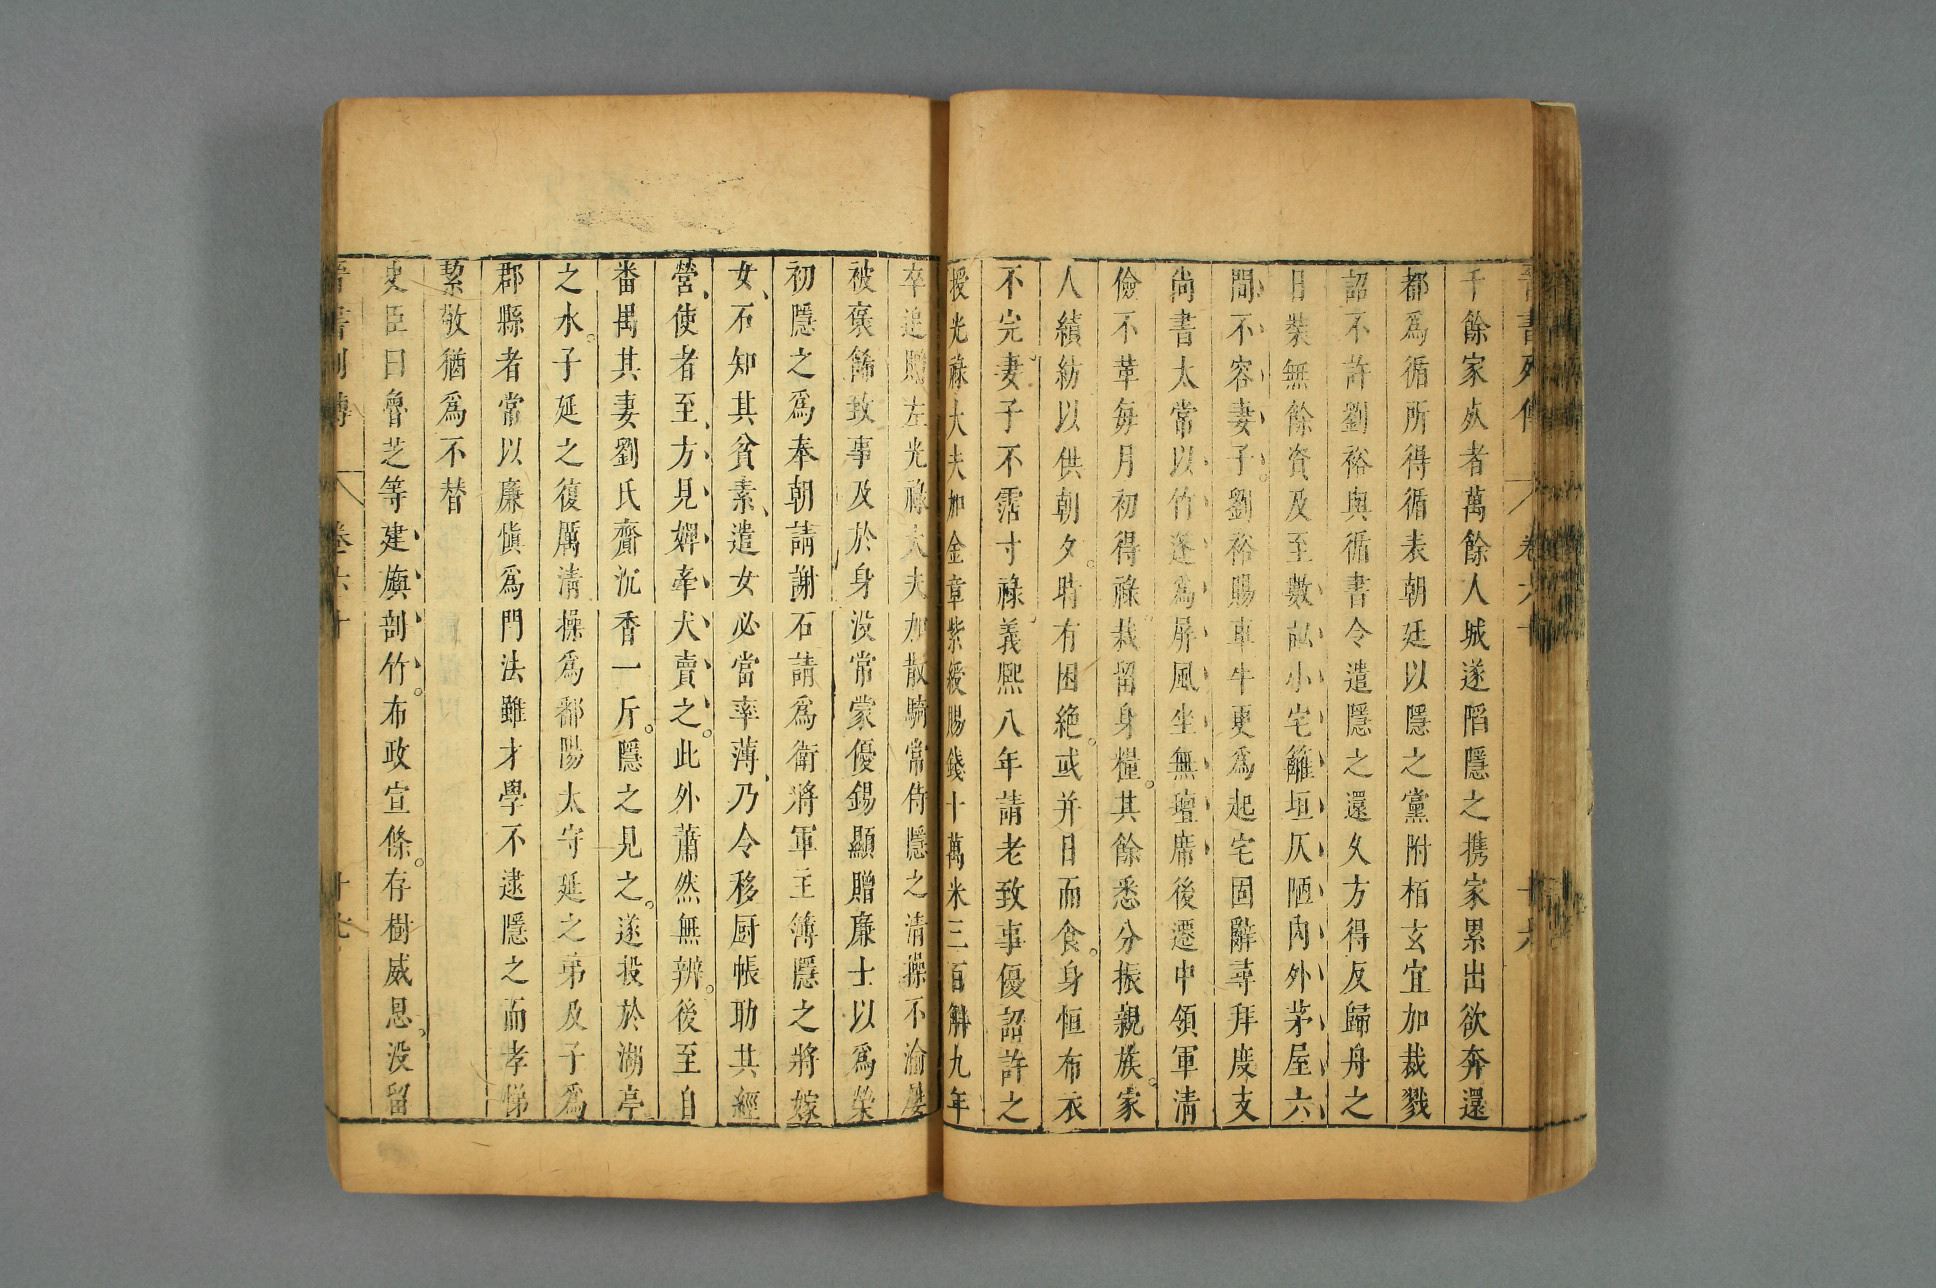 晉書列傳 卷六十 十六
千餘家死者萬餘人城遂陷隱之攜家累出欲奔還
都爲循所得循表朝廷以隱之黨附桓玄宜加裁戮
詔不許劉裕與循書令遣隱之還久方得反歸舟之
日裝無餘資及至數畝小宅籬垣仄陋內外茅屋六
間不容妻子。劉裕賜車牛更爲起宅固辭尋拜度支
尚書太常以竹篷爲屏風坐無氊席後遷中領軍清
儉不革每月初得祿裁留身糧。其餘悉分振親族。家
人績紡以供朝夕。時有困絶。或并日而食。身恒布衣
不完。妻子不霑寸祿。義熙八年請老致事優詔許之
授光祿大夫加金章紫綬賜錢十萬米三百斛九年
卒追贈左光祿大夫加散騎常侍隱之清操不渝屢
被褒飾致事及於身沒常蒙優錫顯贈廉士以爲榮
初隱之爲奉朝請謝石請爲衛將軍主簿隱之將嫁
女、石知其貧素、遣女必當率薄、乃令移厨帳助其經
營、使者至、方見婢牽犬賣之。此外蕭然無辨。後至自
番禺其妻劉氏齎沉香一斤。隱之見之。遂投於湖亭
之水。子延之復厲清操爲鄱陽太守延之弟及子爲
郡縣者常以廉愼爲門法雖才學不逮隱之而孝悌
絜敬猶爲不替
史臣曰魯芝等建旟剖竹。布政宣條。存樹威恩。沒留
晉書列傳 卷六十 十七